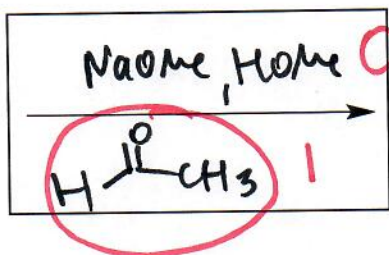 NaOMe, HOMe 0
O
H CH3 1